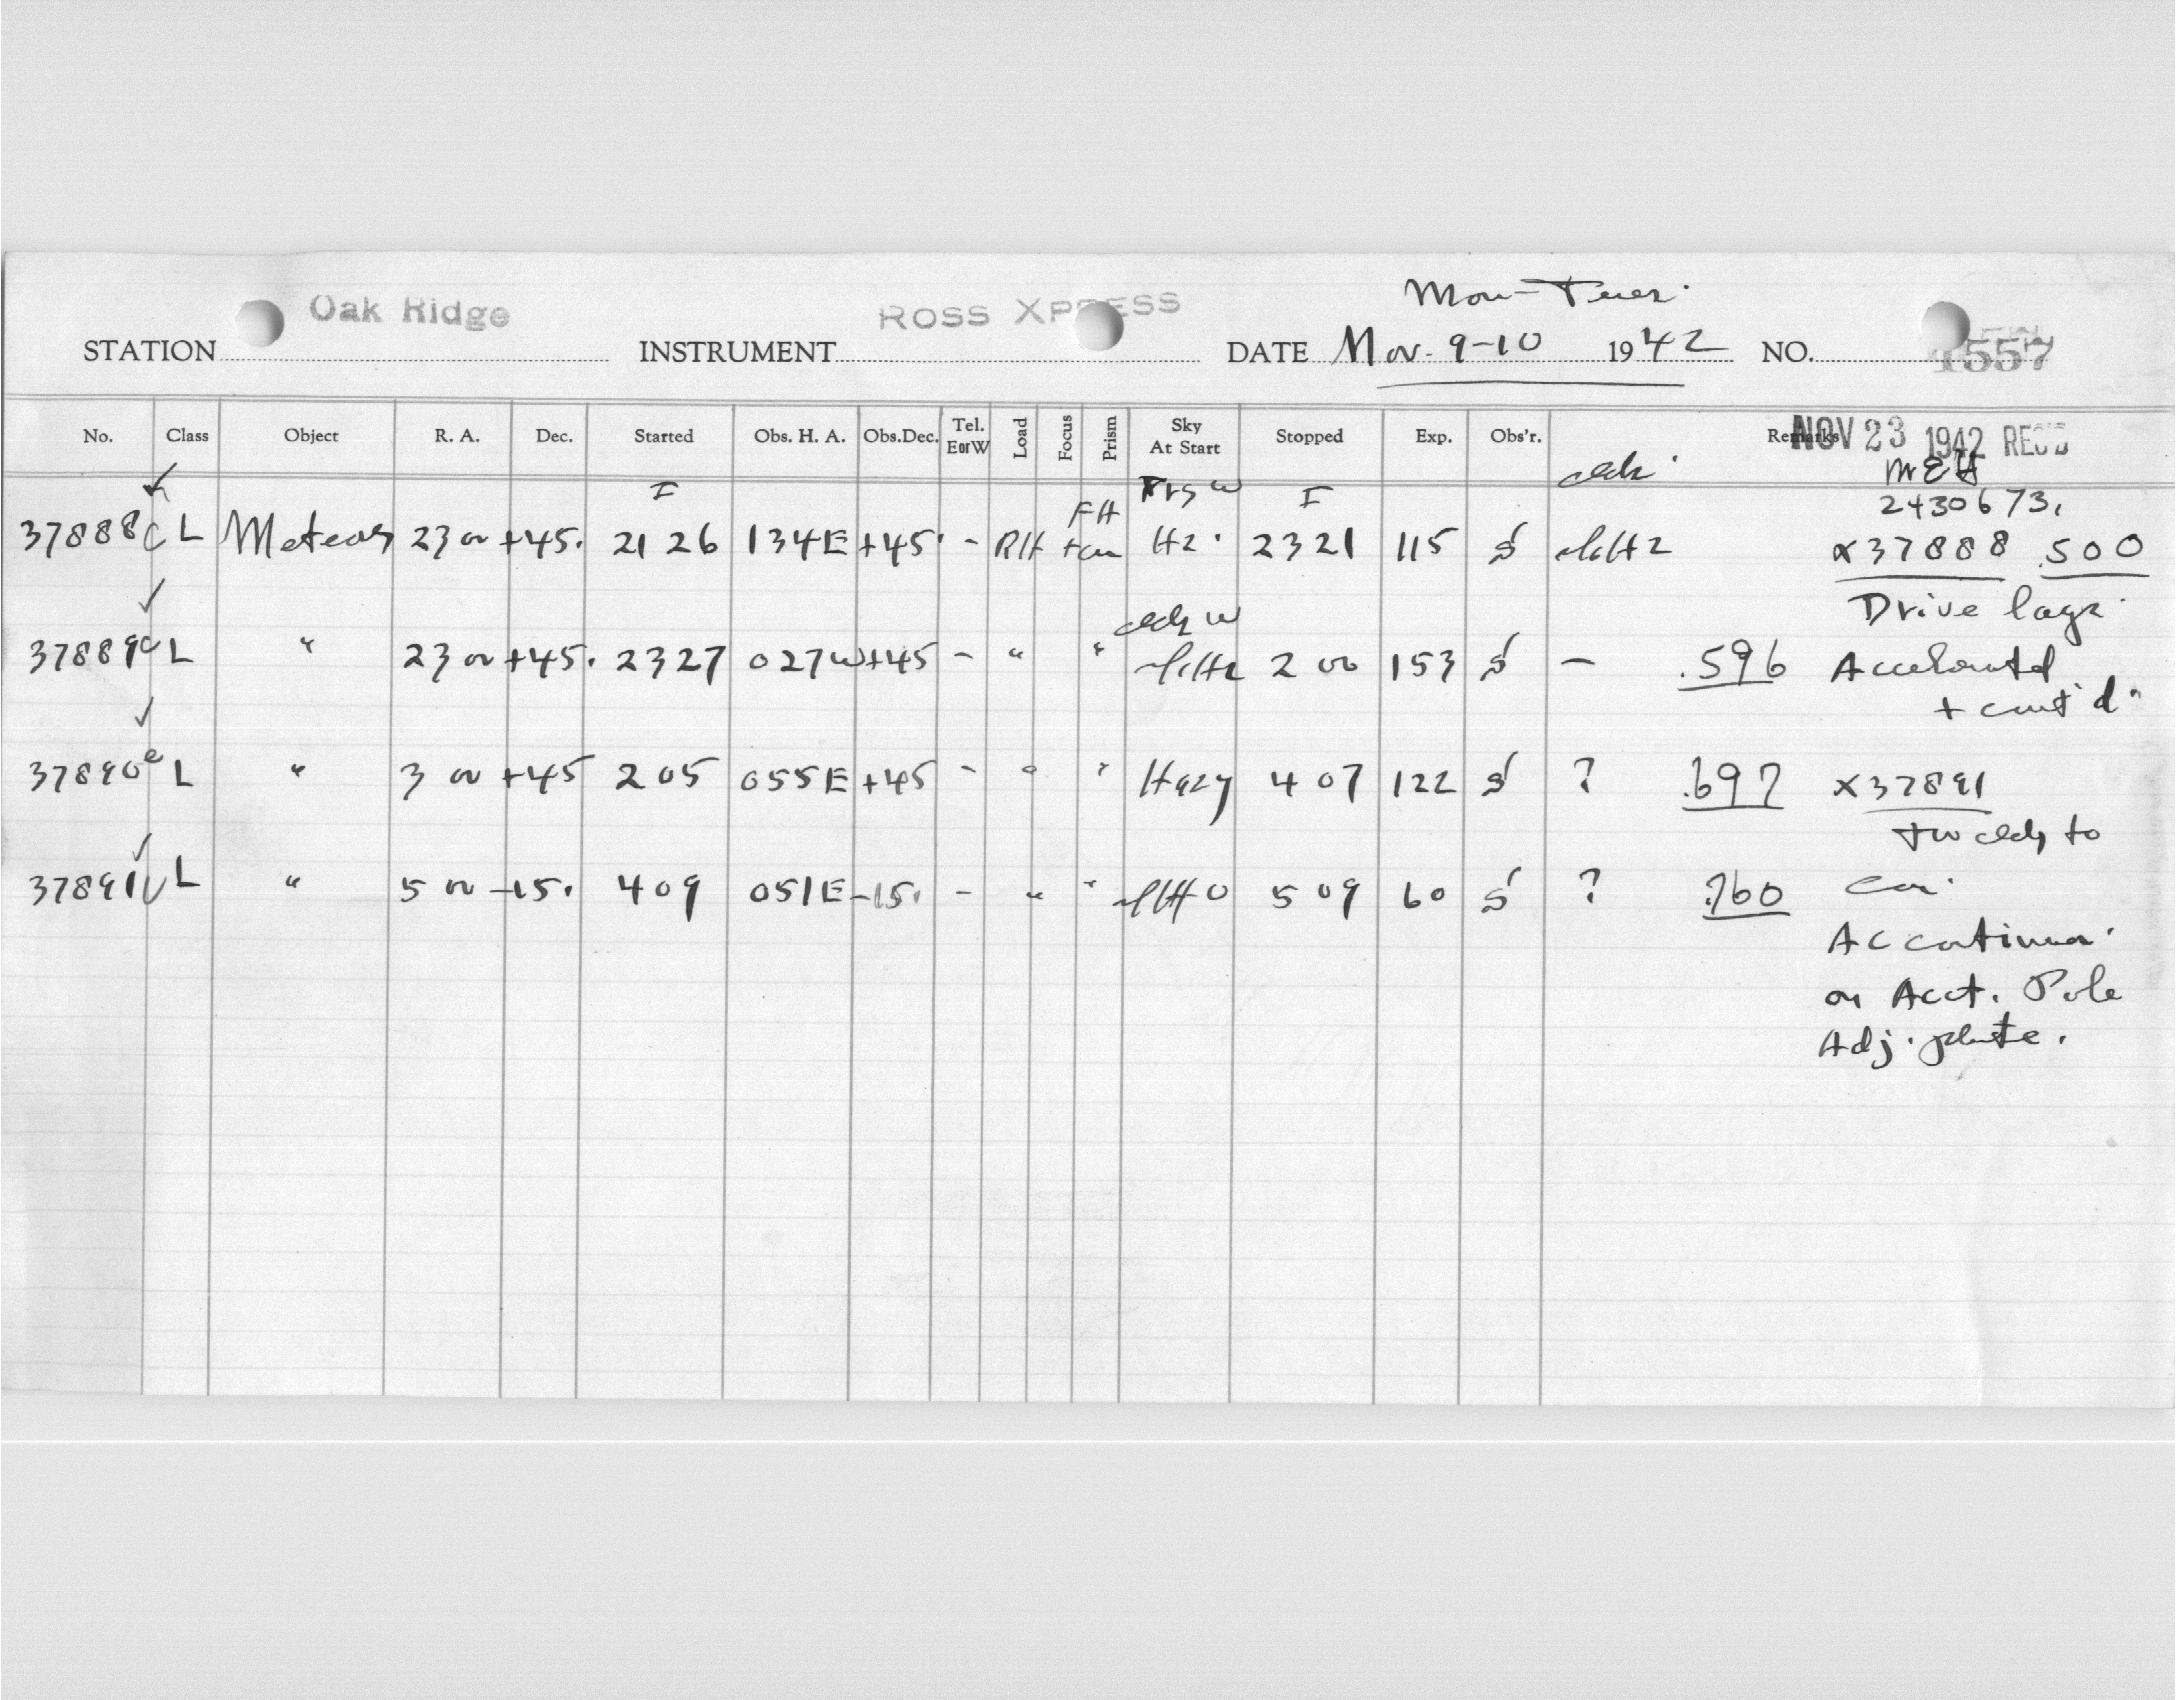 Mon-Tues.
STATION Oak Ridge INSTRUMENT ROSS XPRESS DATE Nov. 9-10 1942 NO. 1557
No. Class Object R. A. Dec. Started Obs. H. A. Obs.Dec. Tel. E or W Load Focus Prism Sky At Start Stopped Exp. Obs'r. Remarks
NOV 23 1942 REC'D
MEH
2430673.
37888 c L Meteors 23 00 +45. 21 26 134E +45. - RH FH Hz. 2321 115 S x37888 .500
Drive lags.
37889 c L " 23 00 +45. 2327 027W +45 - " " 2 00 153 S - .596 Accelerated
+ cont'd.
37890 c L " 3 00 +45 2 05 055E +45 - " " Hazy 4 07 122 S ? .697 x37891
37891 c L " 5 00 -15. 4 09 051E -15. - " " 5 09 60 S ? .760
on Acct. Pole
Adj. plate.